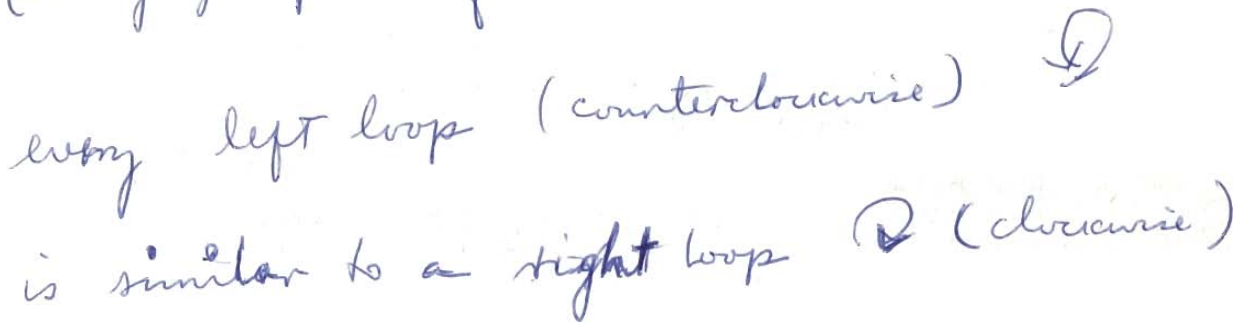 every left loop (counterclockwise)
is similar to a right loop (clockwise)